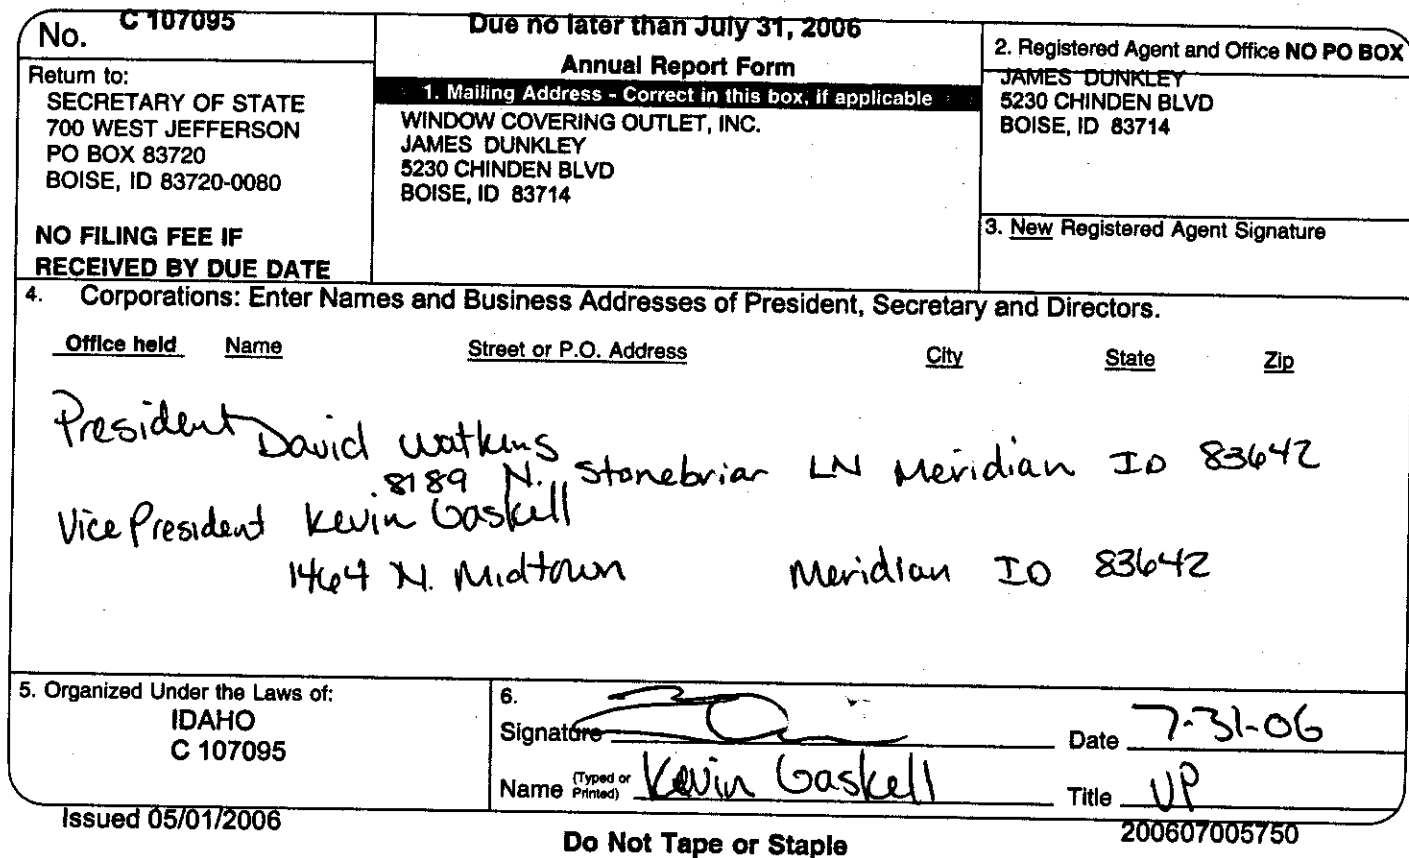 No. C 107095
Return to:
SECRETARY OF STATE
700 WEST JEFFERSON
PO BOX 83720
BOISE, ID 83720-0080
NO FILING FEE IF
RECEIVED BY DUE DATE
Due no later than July 31, 2006
Annual Report Form
1. Mailing Address - Correct in this box, if applicable
WINDOW COVERING OUTLET, INC.
JAMES DUNKLEY
5230 CHINDEN BLVD
BOISE, ID 83714
2. Registered Agent and Office NO PO BOX
JAMES DUNKLEY
5230 CHINDEN BLVD
BOISE, ID 83714
3. New Registered Agent Signature
4. Corporations: Enter Names and Business Addresses of President, Secretary and Directors.
Office held Name Street or P.O. Address City State Zip
President David Watkins
8189 N. Stonebriar LN Meridian ID 83642
Vice President Kevin Gaskell
1464 N. Midtown Meridian ID 83642
5. Organized Under the Laws of:
IDAHO
C 107095
6.
Signature Date 7-31-06
Name (Typed or Printed) Kevin Gaskell Title VP
Issued 05/01/2006
Do Not Tape or Staple
200607005750